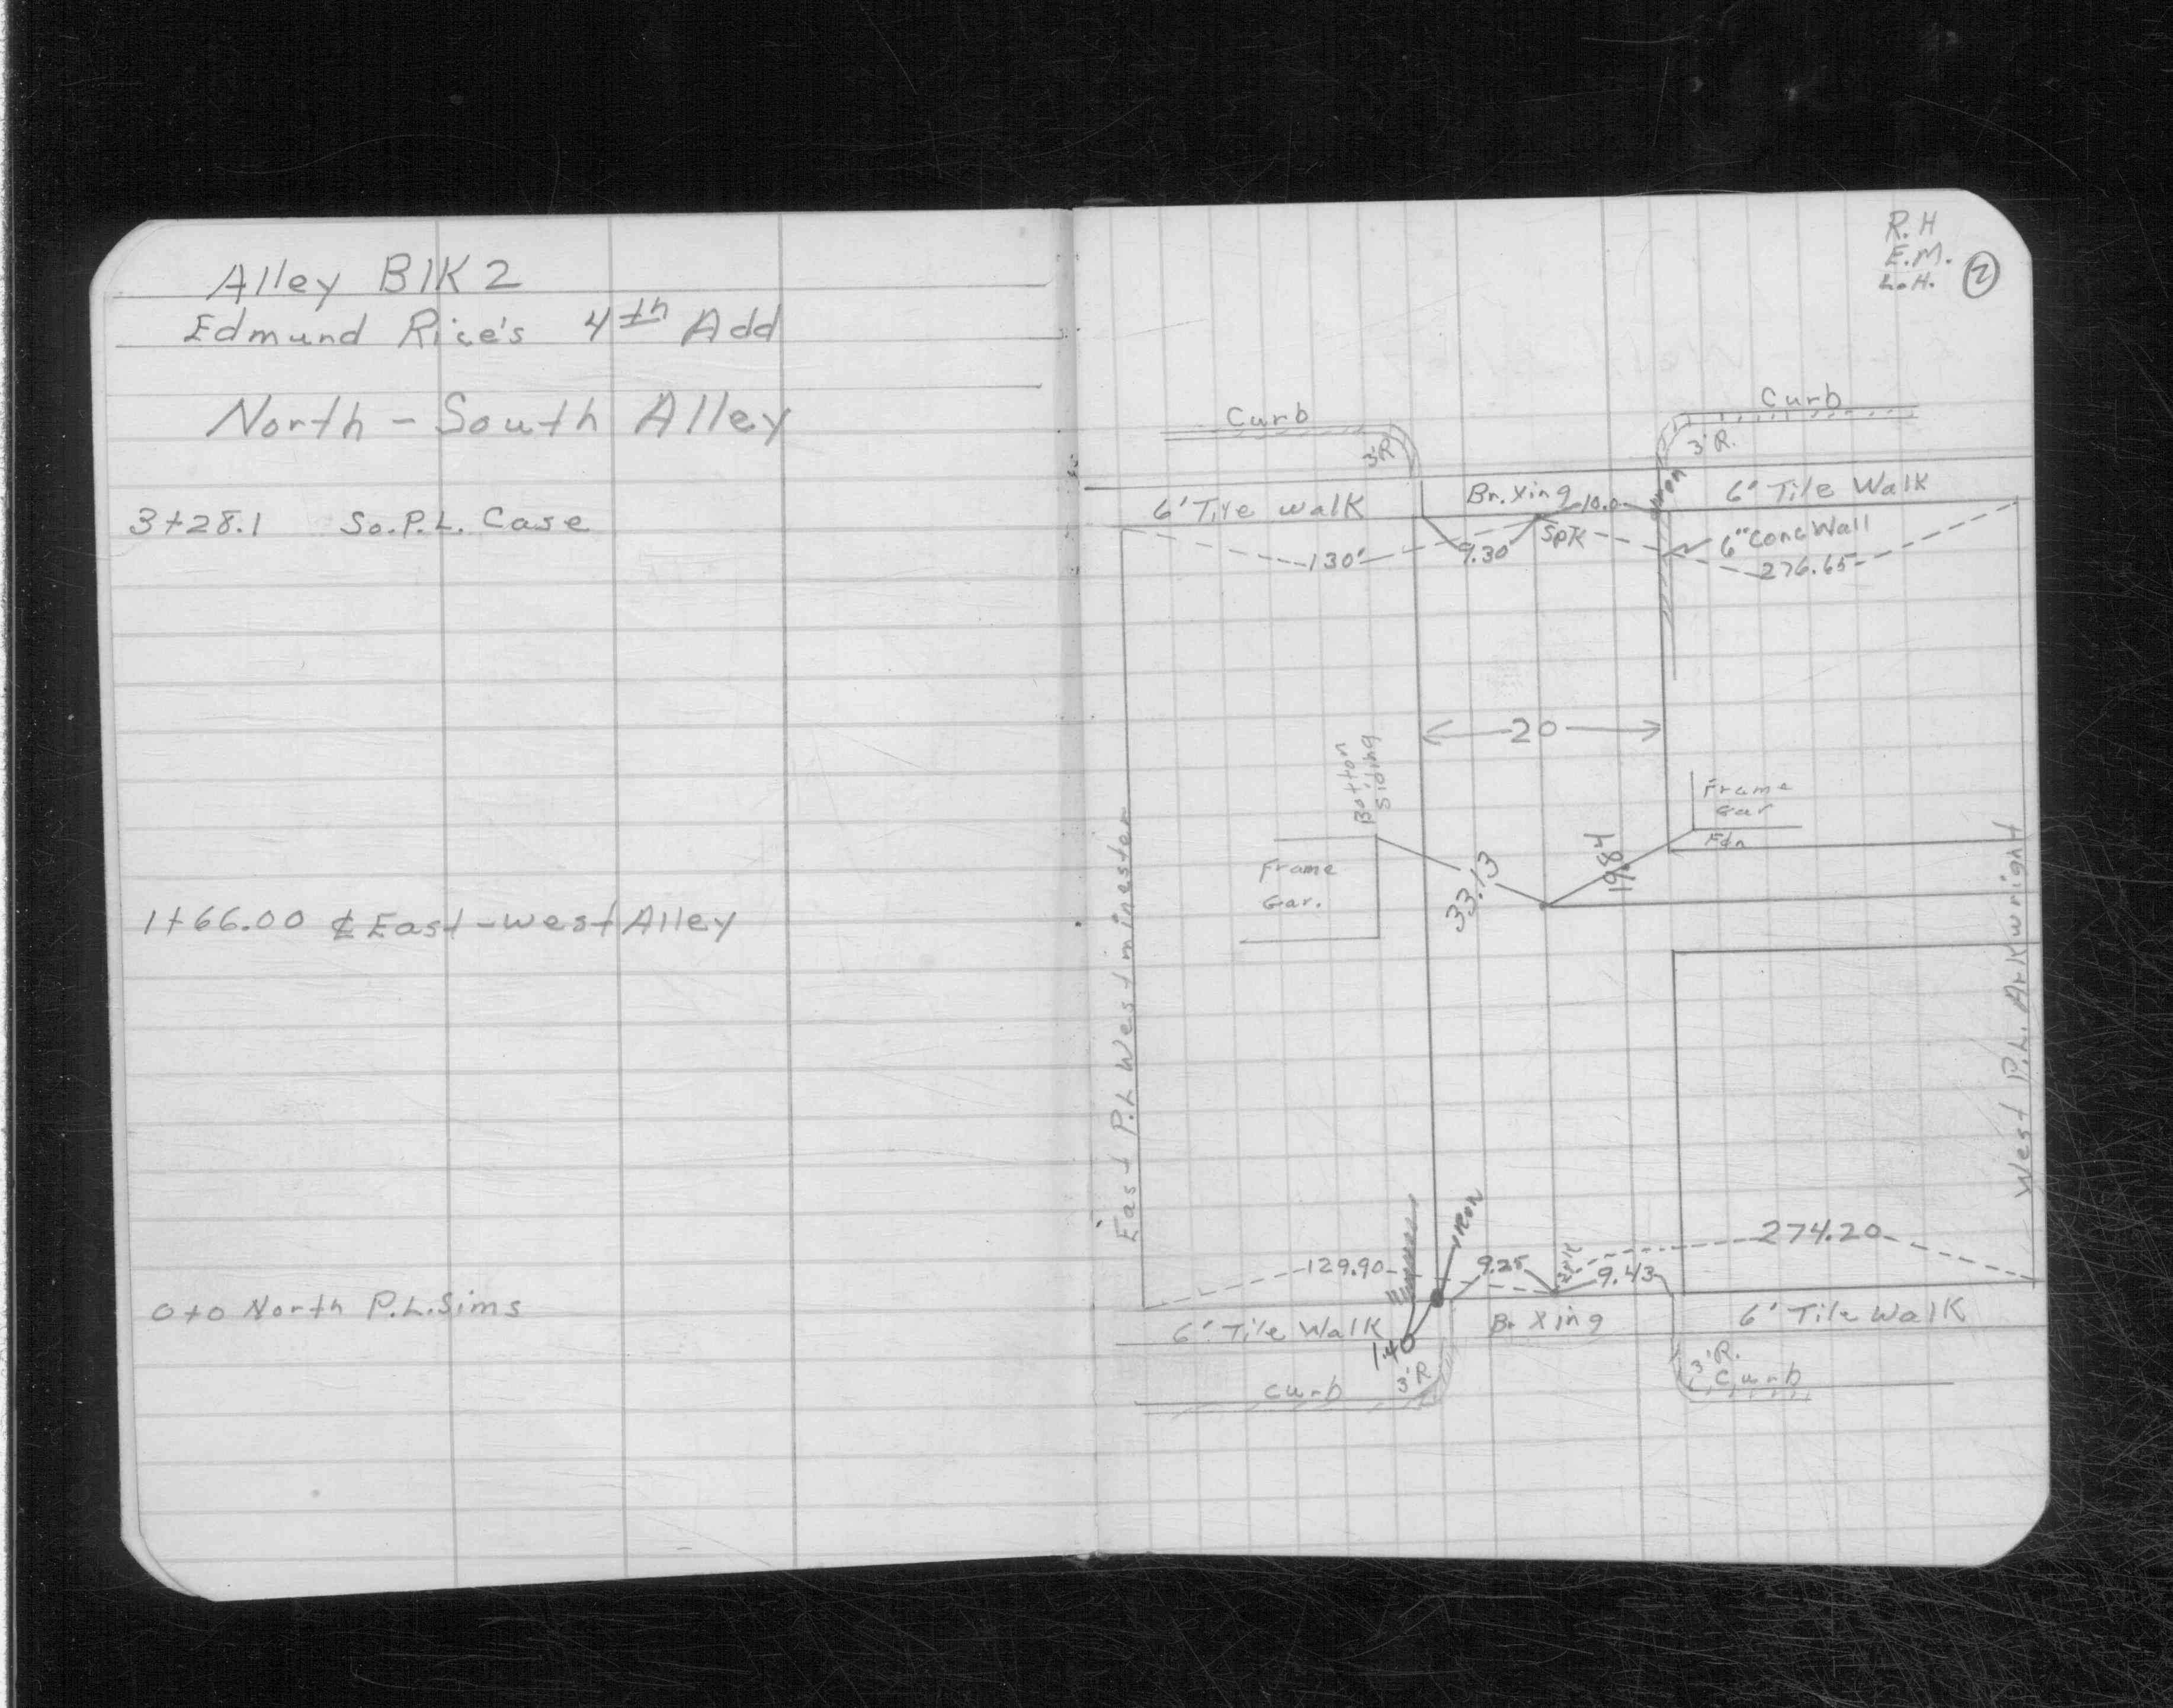 Alley Blk 2
Edmund Rice's 4th Add
North - South Alley
3+28.1 So. P.L. Case
1+66.00 ℄ East-west Alley
0+0 North P.L. Sims
R.H
E.M.
L.H.
2
Curb
Curb
3'R
3'R.
6' Tile walk
Br. Xing
10.0
Iron
6' Tile Walk
130'
9.30
Spk
6" Conc Wall
276.65
20
Botton
Siding
Frame
Gar
Fdn
Frame
Gar.
33.13
19.84
East P.L Westminester
West P.L. Arkwright
Iron
129.90
9.25
Spk
9.43
274.20
6' Tile Walk
1.40
Br Xing
6' Tile Walk
3'R
3'R.
Curb
Curb